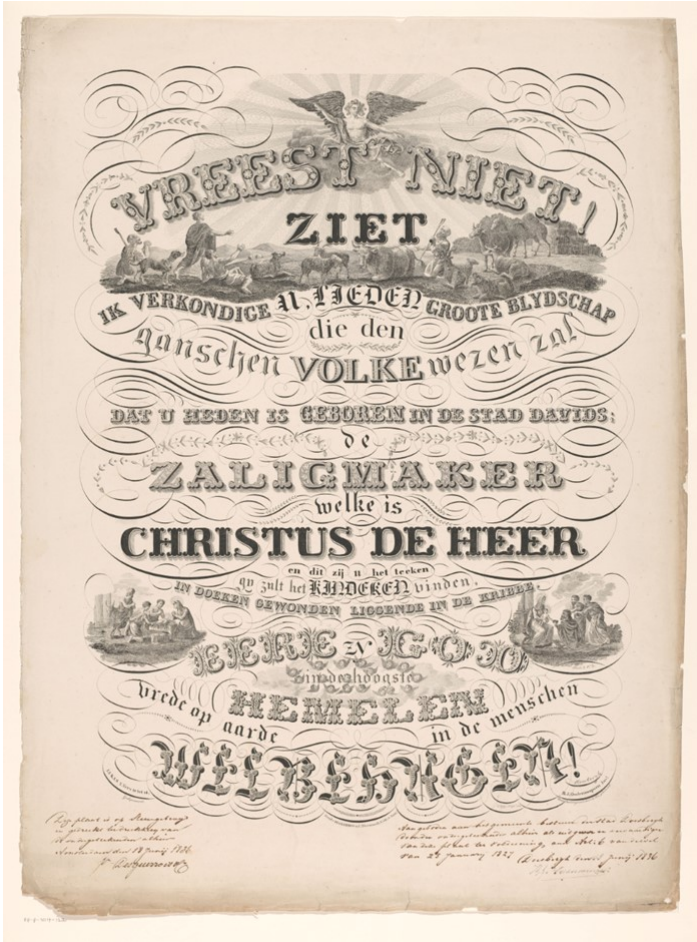 VREEST NIET!
ZIET,
IK VERKONDIGE U, LIEDEN GROOTE BLYDSCHAP
die den
ganschen VOLKE wezen zal
DAT U HEDEN IS GEBOREN IN DE STAD DAVIDS;
de
ZALIGMAKER
welke is
CHRISTUS DE HEER
en dit zij u het teeken
gy zult het KINDEKEN vinden,
IN DOEKEN GEWONDEN LIGGENDE IN DE KRIBBE.
EERE ZY GOD
in de hoogste
HEMELEN
vrede op aarde in de menschen
WELBEHAGEN!